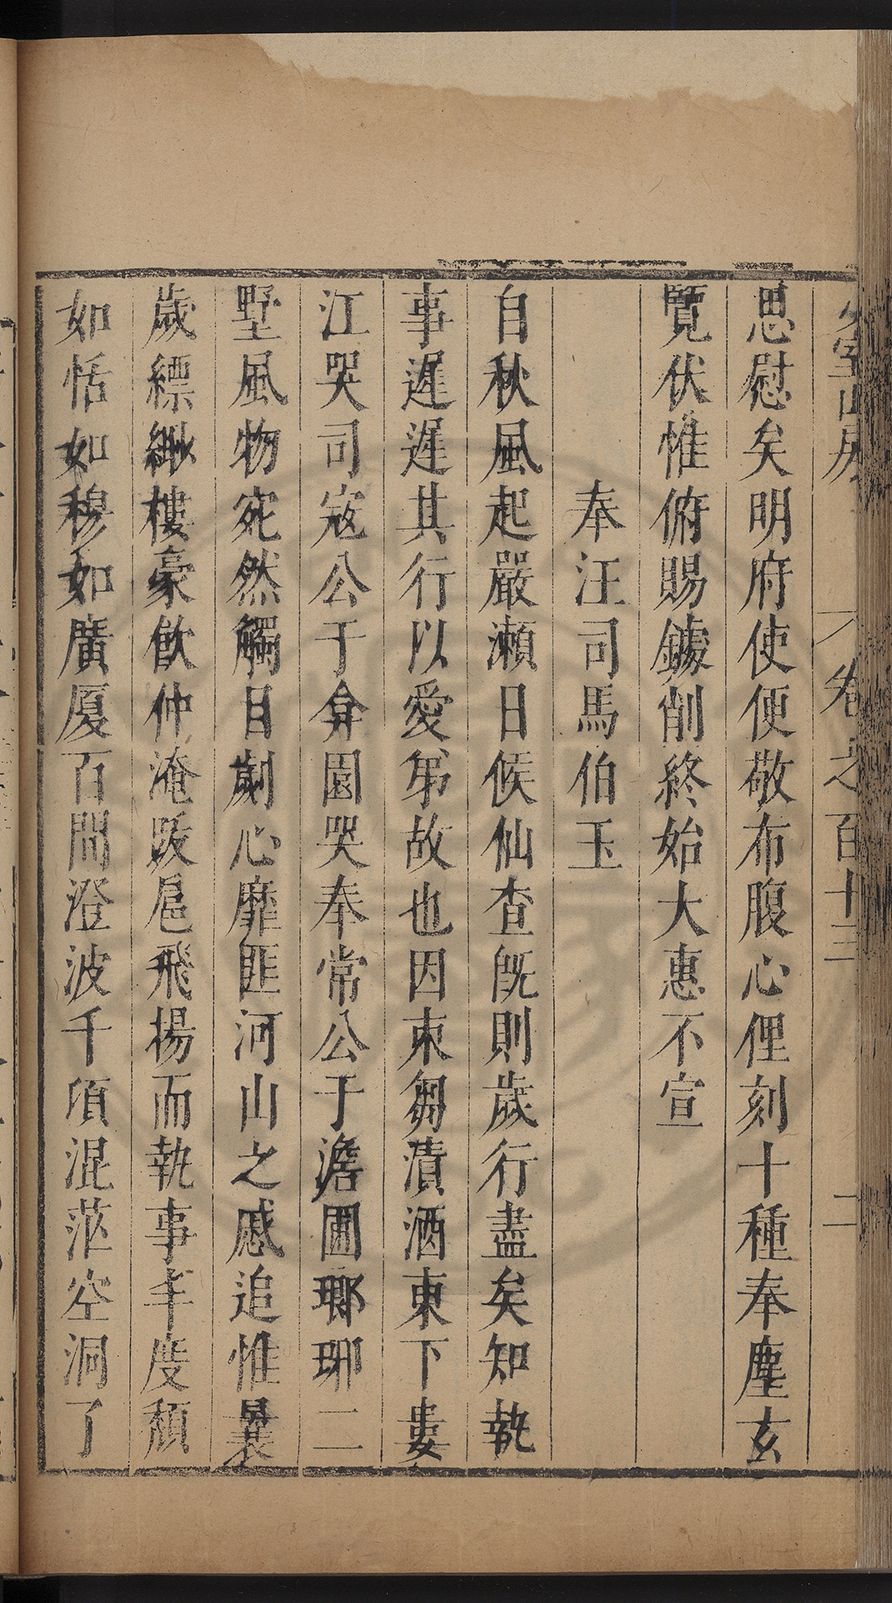 少室山房 卷之百十三 二
思慰矣明府使便敬布腹心俚刻十種奉塵玄
覽伏惟俯賜鐻削終始大惠不宣
奉汪司馬伯玉
自秋風起嚴瀨日候仙查旣則歲行盡矣知執
事遲遲其行以愛弟故也因束芻漬酒東下婁
江哭司寇公于弇園哭奉常公于澹圃瑯琊二
墅風物宛然觸目劌心靡匪河山之慼追惟曩
歲縹緲樓豪飲仲淹跋扈飛揚而執事丰度穨
如恬如穆如廣厦百間澄波千頃混茫空洞了